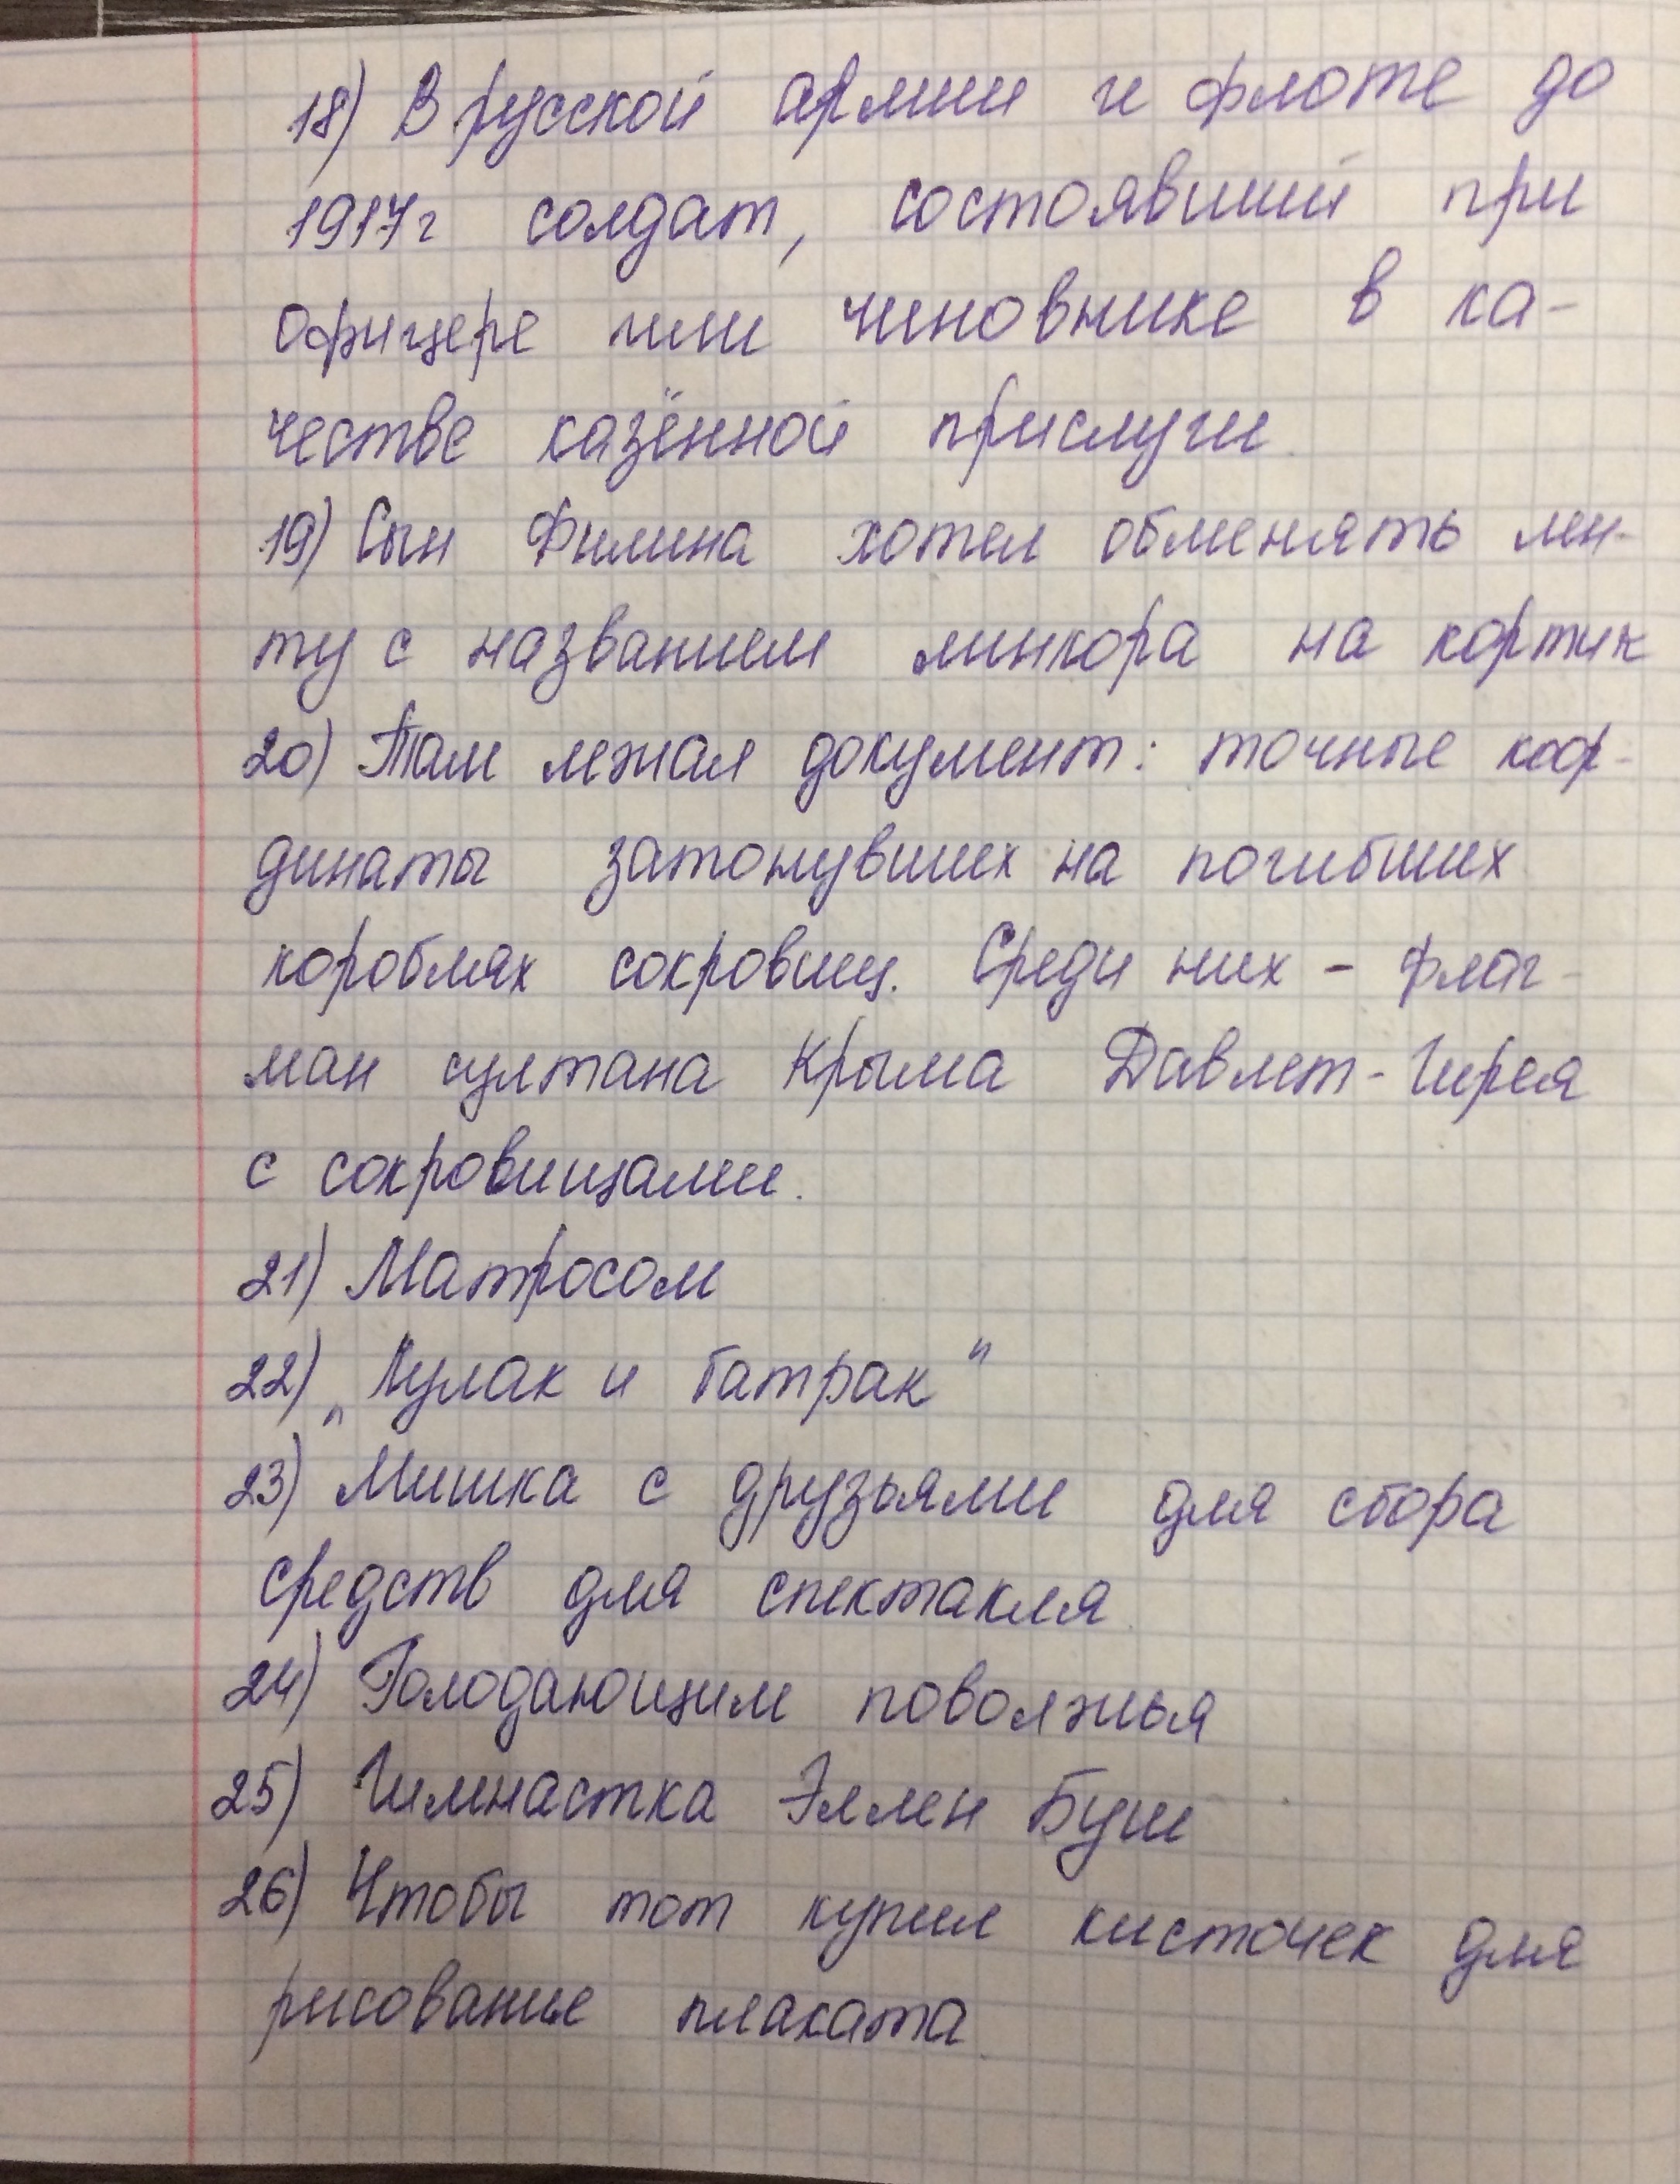 18) В русской армии и флоте до
1917г солдат, состоявший при
офицере или чиновнике в ка-
честве казённой прислуги
19) Сын Филина хотел обменять лен-
ту с названием линкора на кортик
20) Там лежал документ: точные коор-
динаты затонувших на погибших
короблях сокровищ. Среди них - флаг-
ман султана Крыма Давлет-Гирея
с сокровищами.
21) Матросом
22) "Кулак и батрак"
23) Мишка с друзьями для сбора
средств для спектакля
24) Голодающим поволжья
25) Гимнастка Эллен Буш
26) Чтобы тот купил кисточек для
рисование плаката